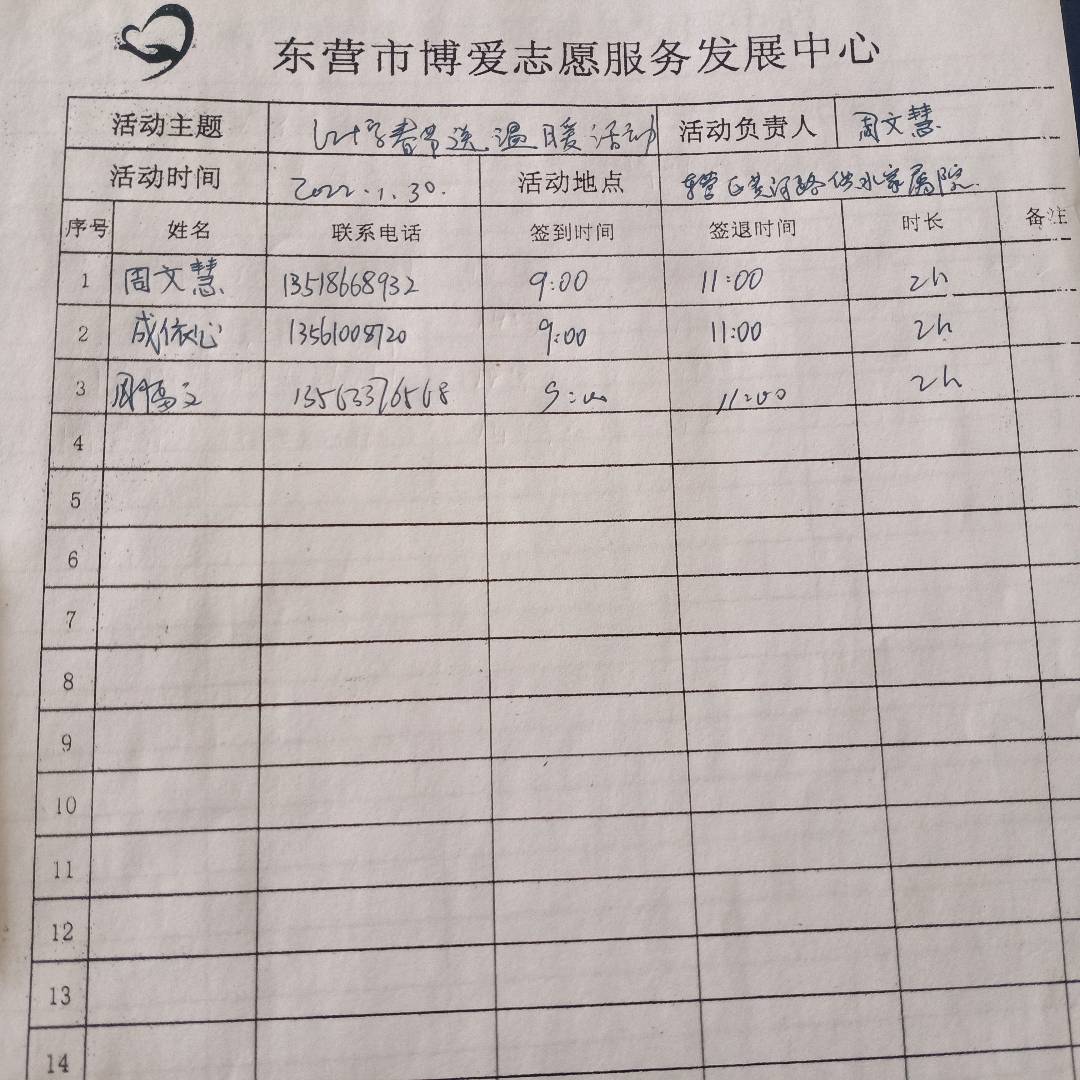 东营市博爱志愿服务发展中心
活动主题 红十字春节送温暖活动 活动负责人 周文慧
活动时间 2022.1.30. 活动地点 东营区黄河路供水家属院
序号 姓名 联系电话 签到时间 签退时间 时长 备注
1 周文慧 13518668932 9:00 11:00 2h
2 成依心 13561008720 9:00 11:00 2h
3 13563376568 9:00 11:00 2h
4
5
6
7
8
9
10
11
12
13
14